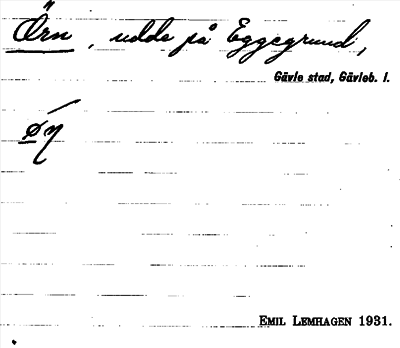 Örn, udde på Eggegrund,
Gävle stad, Gävleb. l.
EMIL LEMHAGEN 1931.